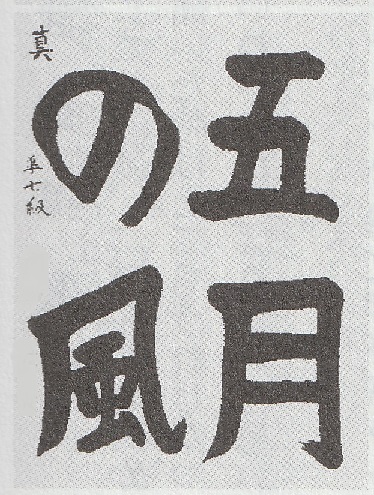 五月
の風
準七級
真